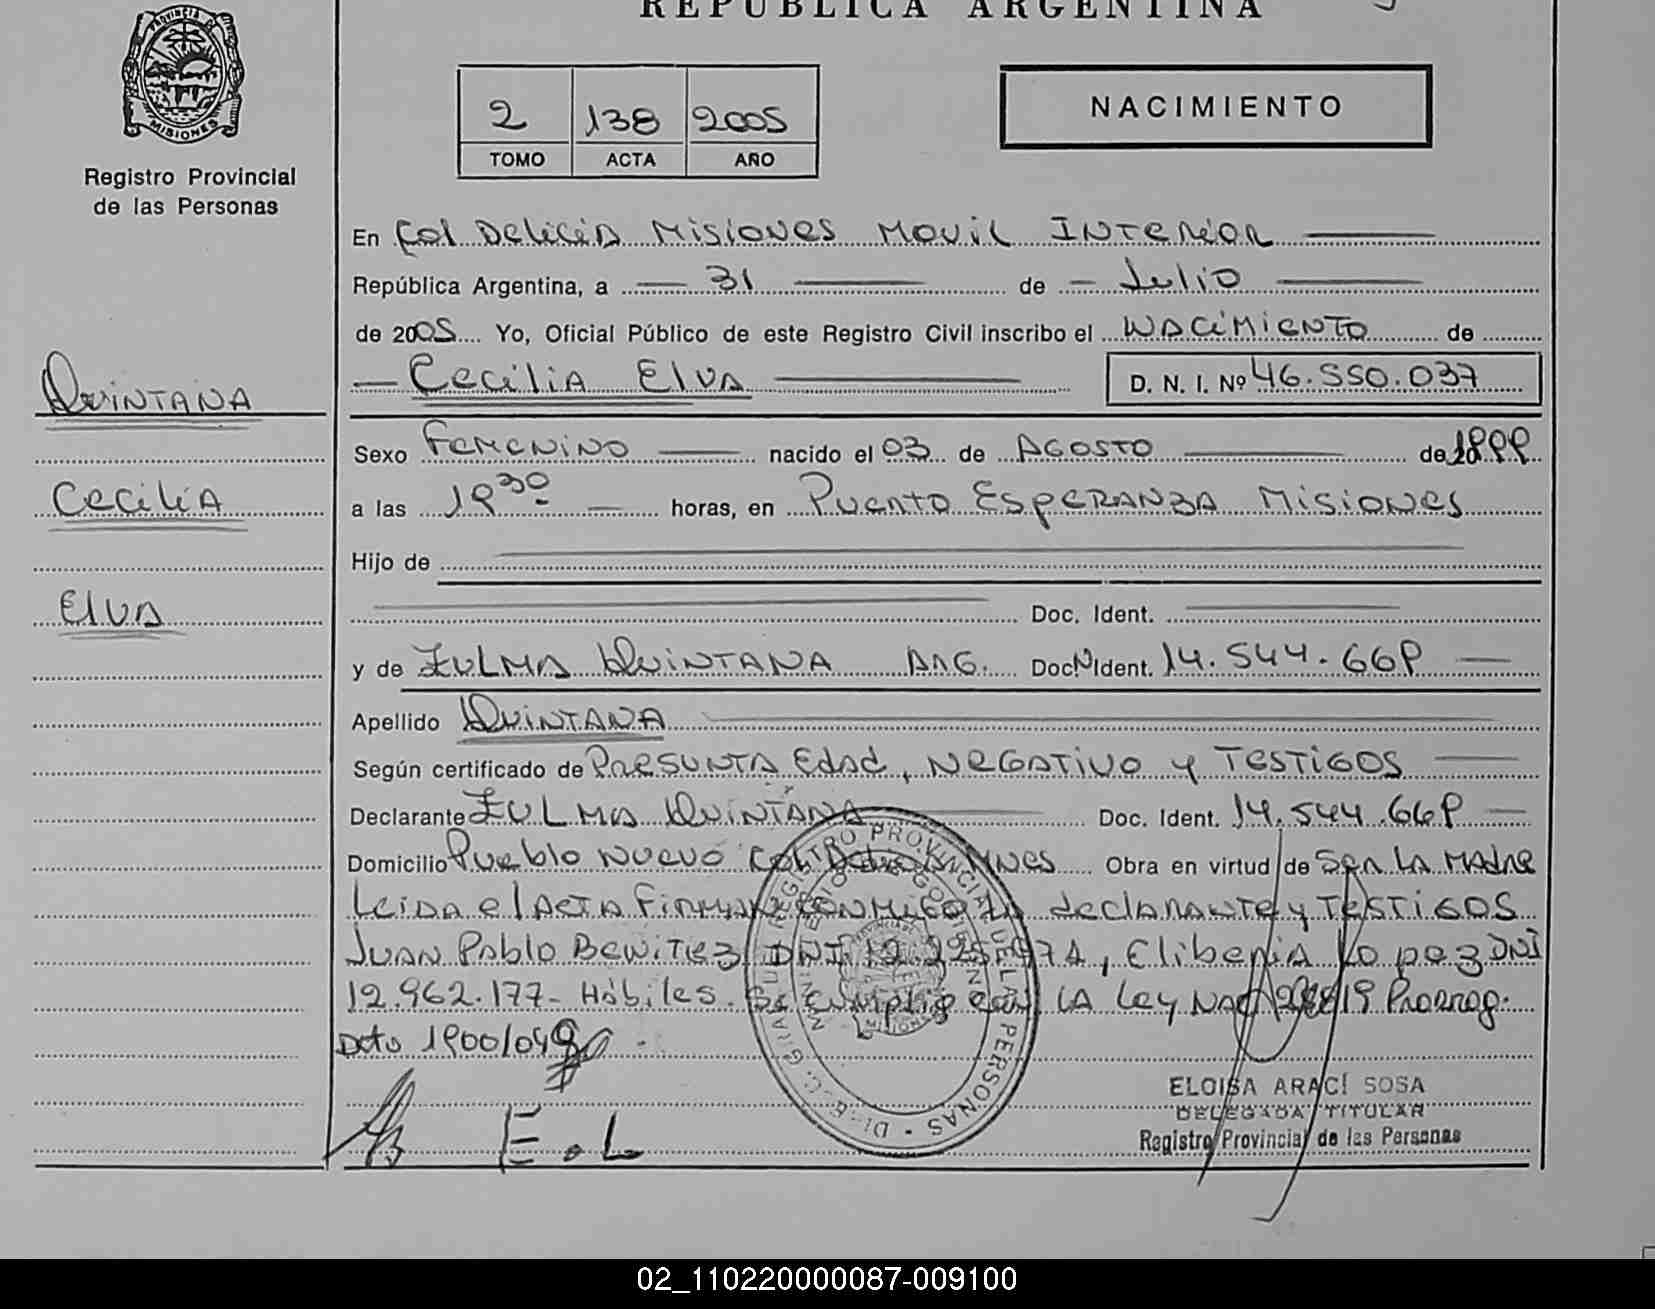 REPUBLICA ARGENTINA
PROVINCIA DE
MISIONES
Registro Provincial
de las Personas
2 138 2005
TOMO ACTA AÑO
NACIMIENTO
En Col Delicia Misiones Movil Interior
República Argentina, a 31 de Julio
de 2005 Yo, Oficial Público de este Registro Civil inscribo el Nacimiento de
Cecilia Elva D. N. I. Nº 46.550.037
Quintana
Cecilia
Elva
Sexo Femenino nacido el 03 de Agosto de 1999
a las 19 30 horas, en Puerto Esperanza Misiones
Hijo de
Doc. Ident.
y de Zulma Quintana Arg. Doc. N Ident. 14.544.669
Apellido Quintana
Según certificado de Presunta Edad, Negativo y Testigos
Declarante Zulma Quintana Doc. Ident. 14.544.669
Domicilio Pueblo Nuevo Col Mnes Obra en virtud de Ser la Madre
Leida el Acta Firman conmigo la declarante y Testigos
Juan Pablo Benitez DNI 12.225.974, Eliberia Lopez DNI
12.962.177- Hábiles. Se cumplio con la Ley Nac Prorrog.
Dcto 1900/04
E.L
REGISTRO PROVINCIAL DE LAS PERSONAS
MISIONES
ELOISA ARACÍ SOSA
DELEGADA TITULAR
Registro Provincial de las Personas
02_110220000087-009100